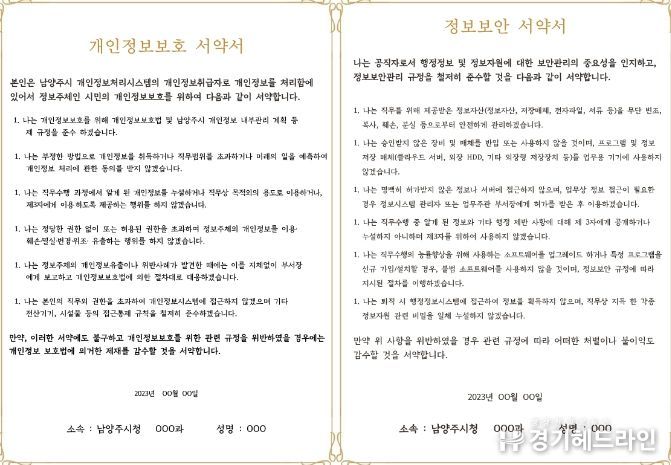 개인정보보호 서약서
본인은 남양주시 개인정보처리시스템의 개인정보취급자로 개인정보를 처리함에
있어서 정보주체인 시민의 개인정보보호를 위하여 다음과 같이 서약합니다.
1. 나는 개인정보보호를 위해 개인정보보호법 및 남양주시 개인정보 내부관리 계획 등
제 규정을 준수 하겠습니다.
1. 나는 부정한 방법으로 개인정보를 취득하거나 직무범위를 초과하거나 미래의 일을 예측하여
개인정보 처리에 관한 동의를 받지 않겠습니다.
1. 나는 직무수행 과정에서 알게 된 개인정보를 누설하거나 직무상 목적외의 용도로 이용하거나,
제3자에게 이용하도록 제공하는 행위를 하지 않겠습니다.
1. 나는 정당한 권한 없이 또는 허용된 권한을 초과하여 정보주체의 개인정보를 이용·
훼손·멸실·변경·위조·유출하는 행위를 하지 않겠습니다.
1. 나는 정보주체의 개인정보유출이나 위반사례가 발견한 때에는 이를 지체없이 부서장
에게 보고하고 개인정보보호법에 의한 절차대로 대응하겠습니다.
1. 나는 본인의 직무의 권한을 초과하여 개인정보시스템에 접근하지 않겠으며 기타
전산기기, 시설물 등의 접근통제 규칙을 철저히 준수하겠습니다.
만약, 이러한 서약에도 불구하고 개인정보보호를 위한 관련 규정을 위반하였을 경우에는
개인정보 보호법에 의거한 제재를 감수할 것을 서약합니다.
2023년 OO월 OO일
소속 : 남양주시청 OOO과 성명 : OOO
정보보안 서약서
나는 공직자로서 행정정보 및 정보자원에 대한 보안관리의 중요성을 인지하고,
정보보안관리 규정을 철저히 준수할 것을 다음과 같이 서약합니다.
1. 나는 직무를 위해 제공받은 정보자산(정보자산, 저장매체, 전자파일, 서류 등)을 무단 변조,
복사, 훼손, 분실 등으로부터 안전하게 관리하겠습니다.
1. 나는 승인받지 않은 장비 및 매체를 반입 또는 사용하지 않을 것이며, 프로그램 및 정보
저장 매체(클라우드 서버, 외장 HDD, 기타 외장형 저장장치 등)를 업무용 기기에 사용하지
않겠습니다.
1. 나는 명백히 허가받지 않은 정보나 서버에 접근하지 않으며, 업무상 정보 접근이 필요한
경우 정보시스템 관리자 또는 업무주관 부서장에게 허가를 받은 후 이용하겠습니다.
1. 나는 직무수행 중 알게 된 정보와 기타 행정 제반 사항에 대해 제 3자에게 공개하거나
누설하지 아니하며 제3자를 위하여 사용하지 않겠습니다.
1. 나는 직무수행의 능률향상을 위해 사용하는 소프트웨어를 업그레이드 하거나 특정 프로그램을
신규 가입/설치할 경우, 불법 소프트웨어를 사용하지 않을 것이며, 정보보안 규정에 따라
지시된 절차를 이행하겠습니다.
1. 나는 퇴직 시 행정정보시스템에 접근하여 정보를 획득하지 않으며, 직무상 지득 한 각종
정보자원 관련 비밀을 일체 누설하지 않겠습니다.
만약 위 사항을 위반하였을 경우 관련 규정에 따라 어떠한 처벌이나 불이익도
감수할 것을 서약합니다.
2023년 OO월 OO일
소속 : 남양주시청 OOO과 성명 : OOO
경기헤드라인